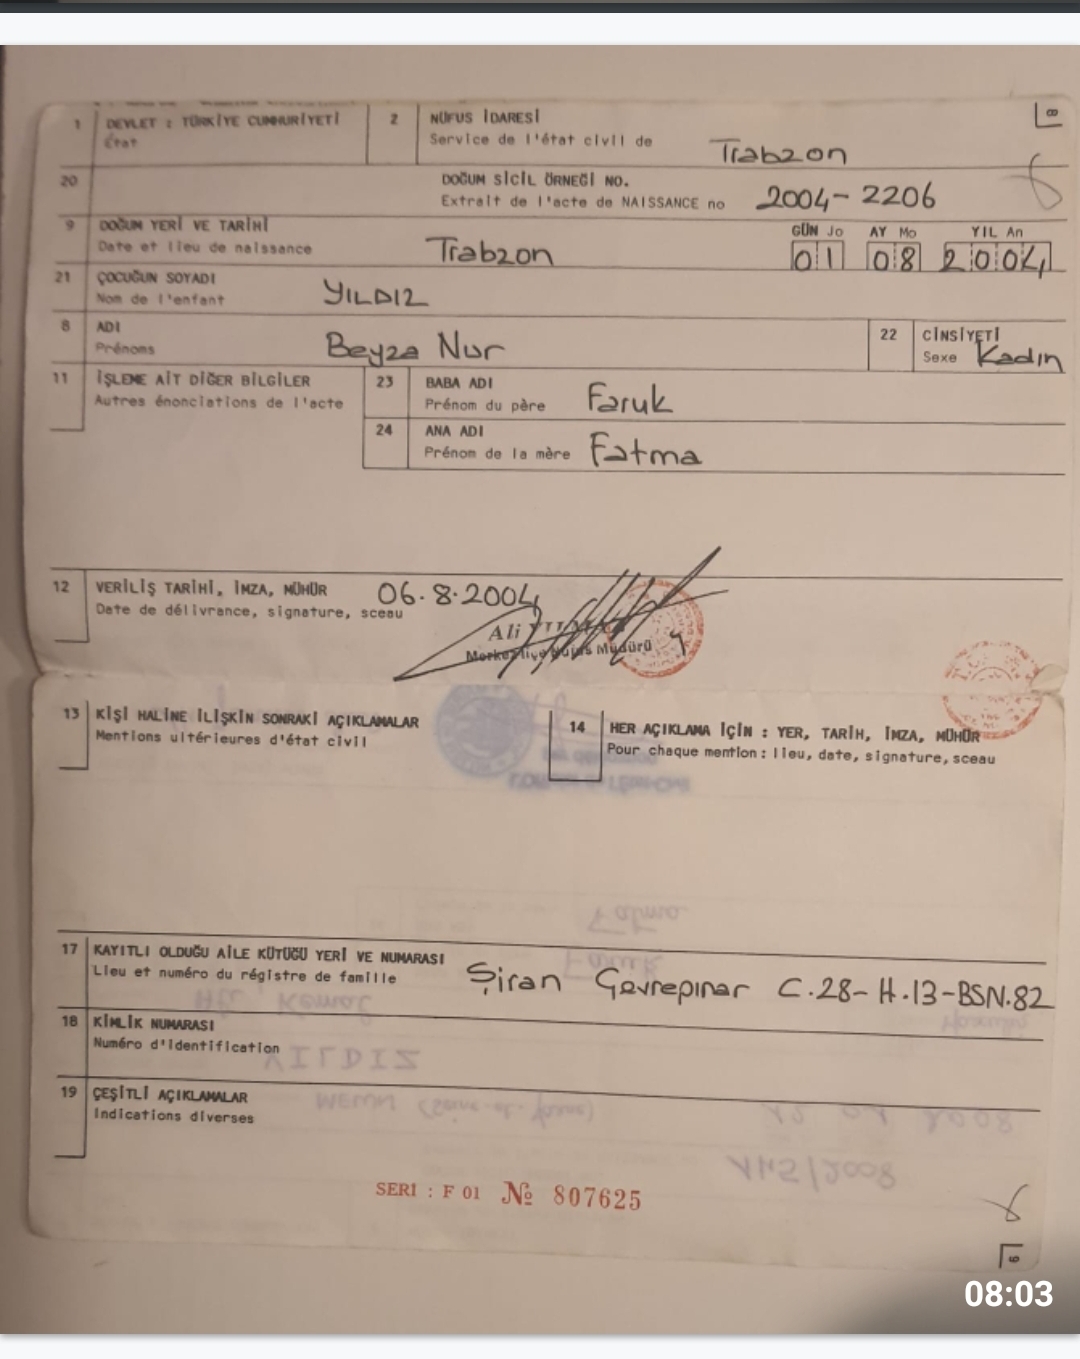 8
1 DEVLET : TÜRKİYE CUMHURİYETİ
État
2 NÜFUS İDARESİ
Service de l'état civil de Trabzon
20 DOĞUM SİCİL ÖRNEĞİ NO.
Extrait de l'acte de NAISSANCE no 2004-2206
9 DOĞUM YERİ VE TARİHİ
Date et lieu de naissance Trabzon
GÜN Jo AY Mo YIL An
01 08 2004
21 ÇOCUĞUN SOYADI
Nom de l'enfant YILDIZ
8 ADI
Prénoms Beyza Nur
22 CİNSİYETİ
Sexe Kadın
11 İŞLEME AİT DİĞER BİLGİLER
Autres énonciations de l'acte
23 BABA ADI
Prénom du père Faruk
24 ANA ADI
Prénom de la mère Fatma
12 VERİLİŞ TARİHİ, İMZA, MÜHÜR 06.8.2004
Date de délivrance, signature, sceau
Ali
Merkez İlçe Nüfus Müdürü
13 KİŞİ HALİNE İLİŞKİN SONRAKİ AÇIKLAMALAR
Mentions ultérieures d'état civil
14 HER AÇIKLAMA İÇİN : YER, TARİH, İMZA, MÜHÜR
Pour chaque mention : lieu, date, signature, sceau
17 KAYITLI OLDUĞU AİLE KÜTÜĞÜ YERİ VE NUMARASI
Lieu et numéro du régistre de famille Şiran Çevrepınar C.28-H.13-BSN.82
18 KİMLİK NUMARASI
Numéro d'identification
19 ÇEŞİTLİ AÇIKLAMALAR
Indications diverses
SERİ : F 01 № 807625
9
08:03